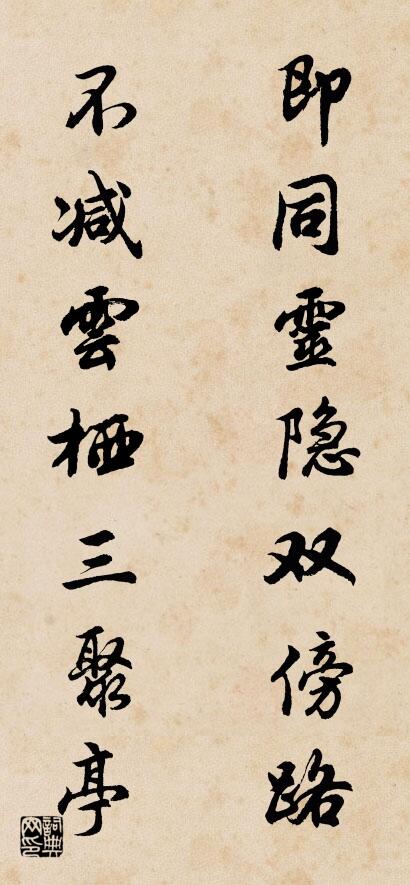 即同靈隐双傍路
不减雲栖三聚亭
詞典网印